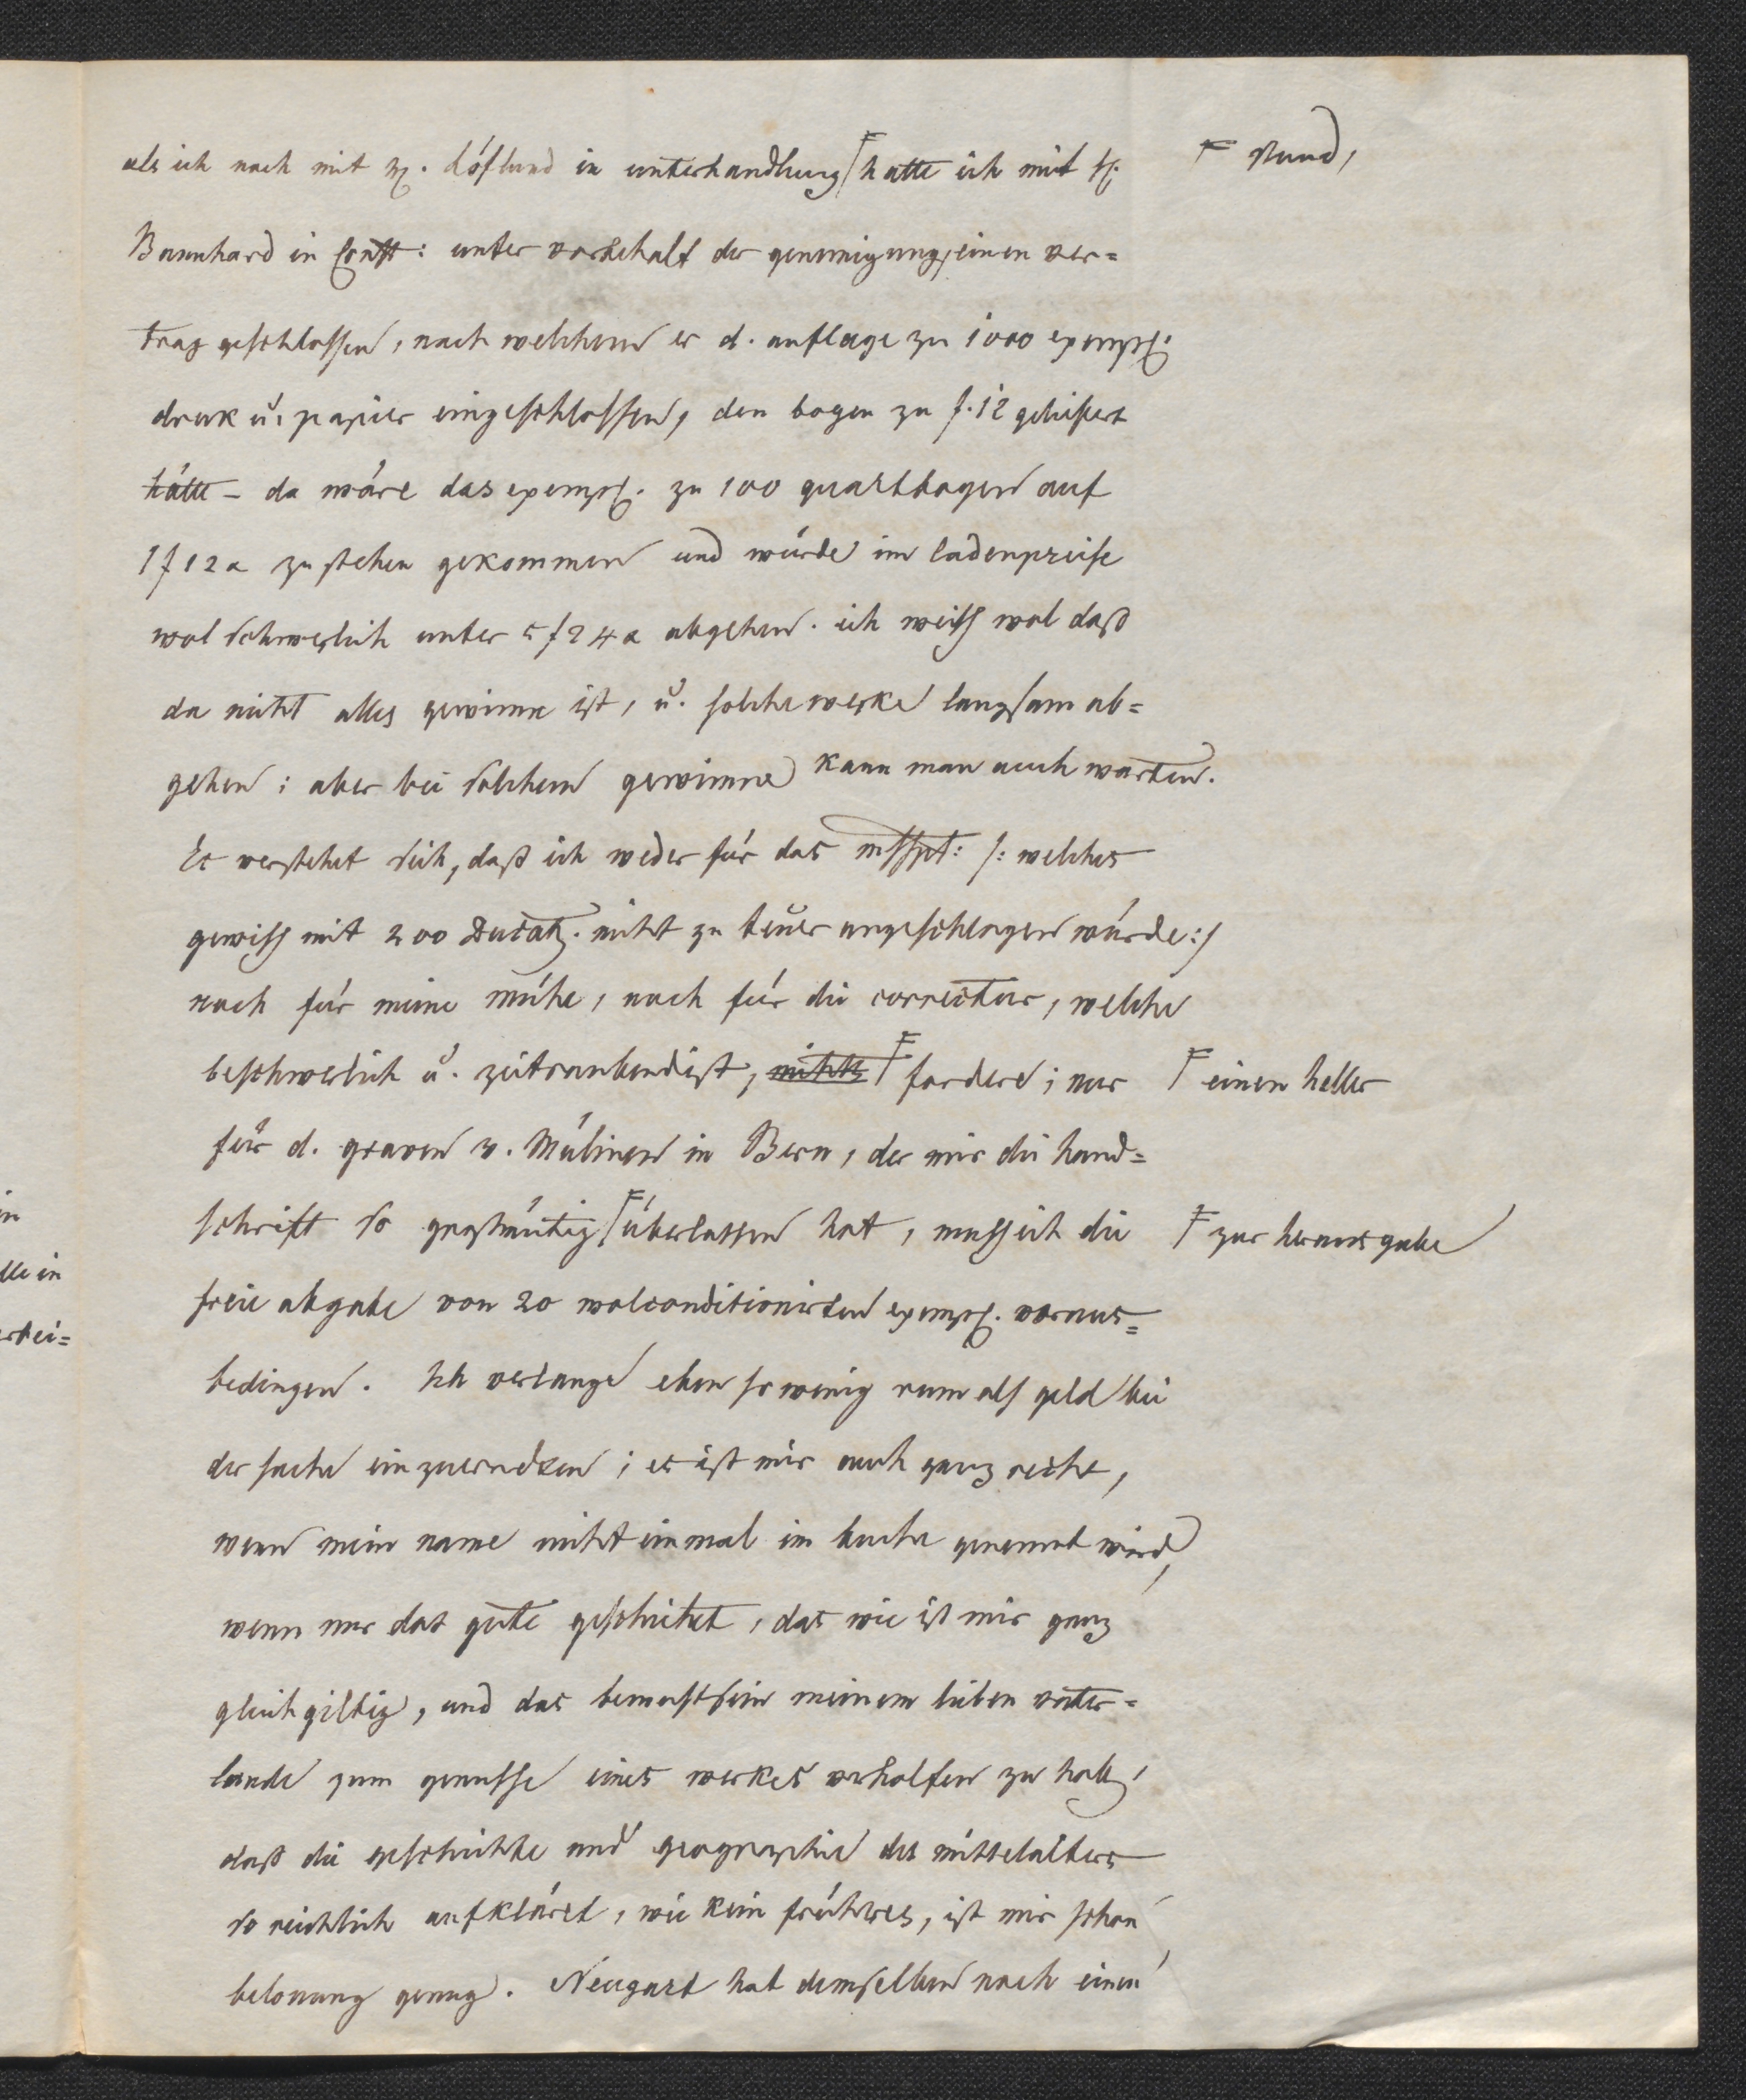 als ich noch mit H. Löflund in unterhandlung ⌈ hatte ich mit H. ⌈ stund,
Bannhard in Const: unter vorbehalt der genemigung, einen ver=
trag geschlossen, nach welchem er d. auflage zu 1000 exempl.
druk u. papier eingeschlossen, den bogen zu f. 12 geliefert
hätte – da wäre das exempl. zu 100 quartbogen auf
1 f 12 x zu stehen gekommen und würde im ladenpreise
wol schwerlich unter 5 f 24 x abgehen. ich weiss wol daß
da nicht alles gewinn ist, u. solche werke langsam ab=
gehen; aber bei solchem gewinne kann man auch warten.
Es verstehet sich, daß ich weder für das msspt: /: welches
gewiss mit 200 Ducat. nicht zu teuer angeschlagen würde :/
noch für meine mühe, noch für die correctur, welche
beschwerlich u. zeitraubend ist, nichts ⌈ fordere; nur ⌈ einen heller
für d. graven v. Mülinen in Bern, der mir die hand=
schrift so grosmütig ⌈ überlassen hat, muss ich die ⌈ zur herausgabe
freie abgabe von 20 wolconditionirten exempl. voraus=
bedingen. Ich verlange eben so wenig rum als geld bei
der sache einzuerndten; es ist mir auch ganz recht,
wenn mein name nicht einmal im buche genennt wird,
wenn nur das gute geschiehet, das wie ist mir ganz
gleichgiltig, und das bewustsein meinem lieben vater=
lande zum genusse eines werkes verholfen zu hab.,
daß die geschichte und geographie des mittelalters
so reichlich aufkläret, wie kein früheres, ist mir schon
belonung genug. Neugart hat demselben noch einen